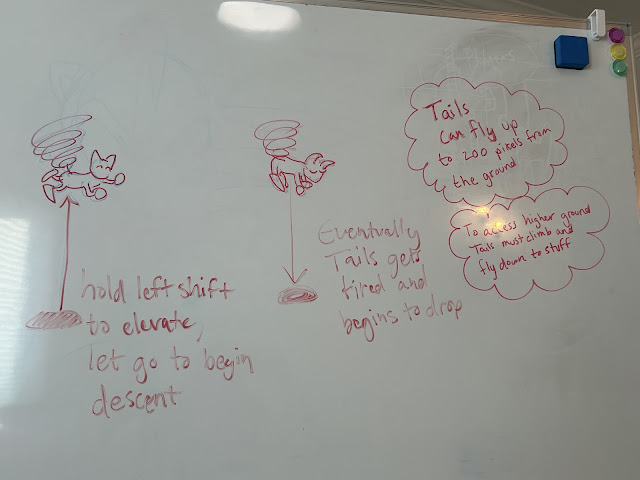 hold left shift
to elevate,
let go to begin
descent
Eventually
Tails gets
tired and
begins to drop
Tails
can fly up
to 200 pixels from
the ground
To access higher ground
Tails must climb and
fly down to stuff